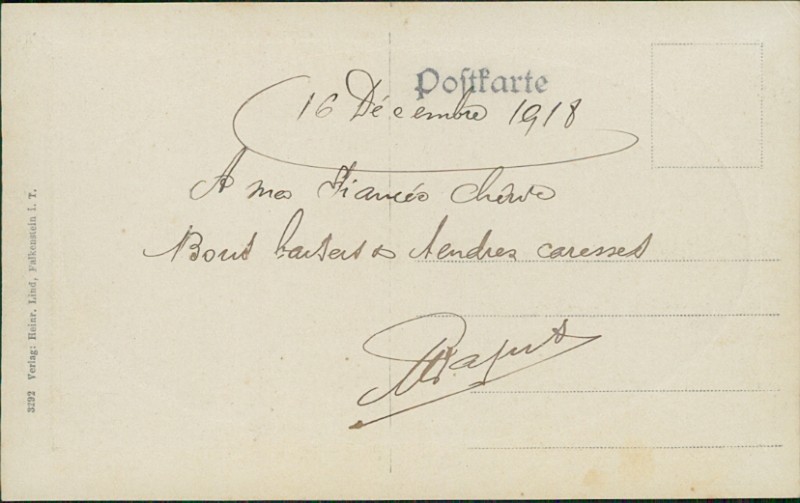 Postkarte
16 Décembre 1918
A ma Fiancée Chérie
Bons baisers & tendres caresses
3292 Verlag: Heinr. Lind, Falkenstein i. T.